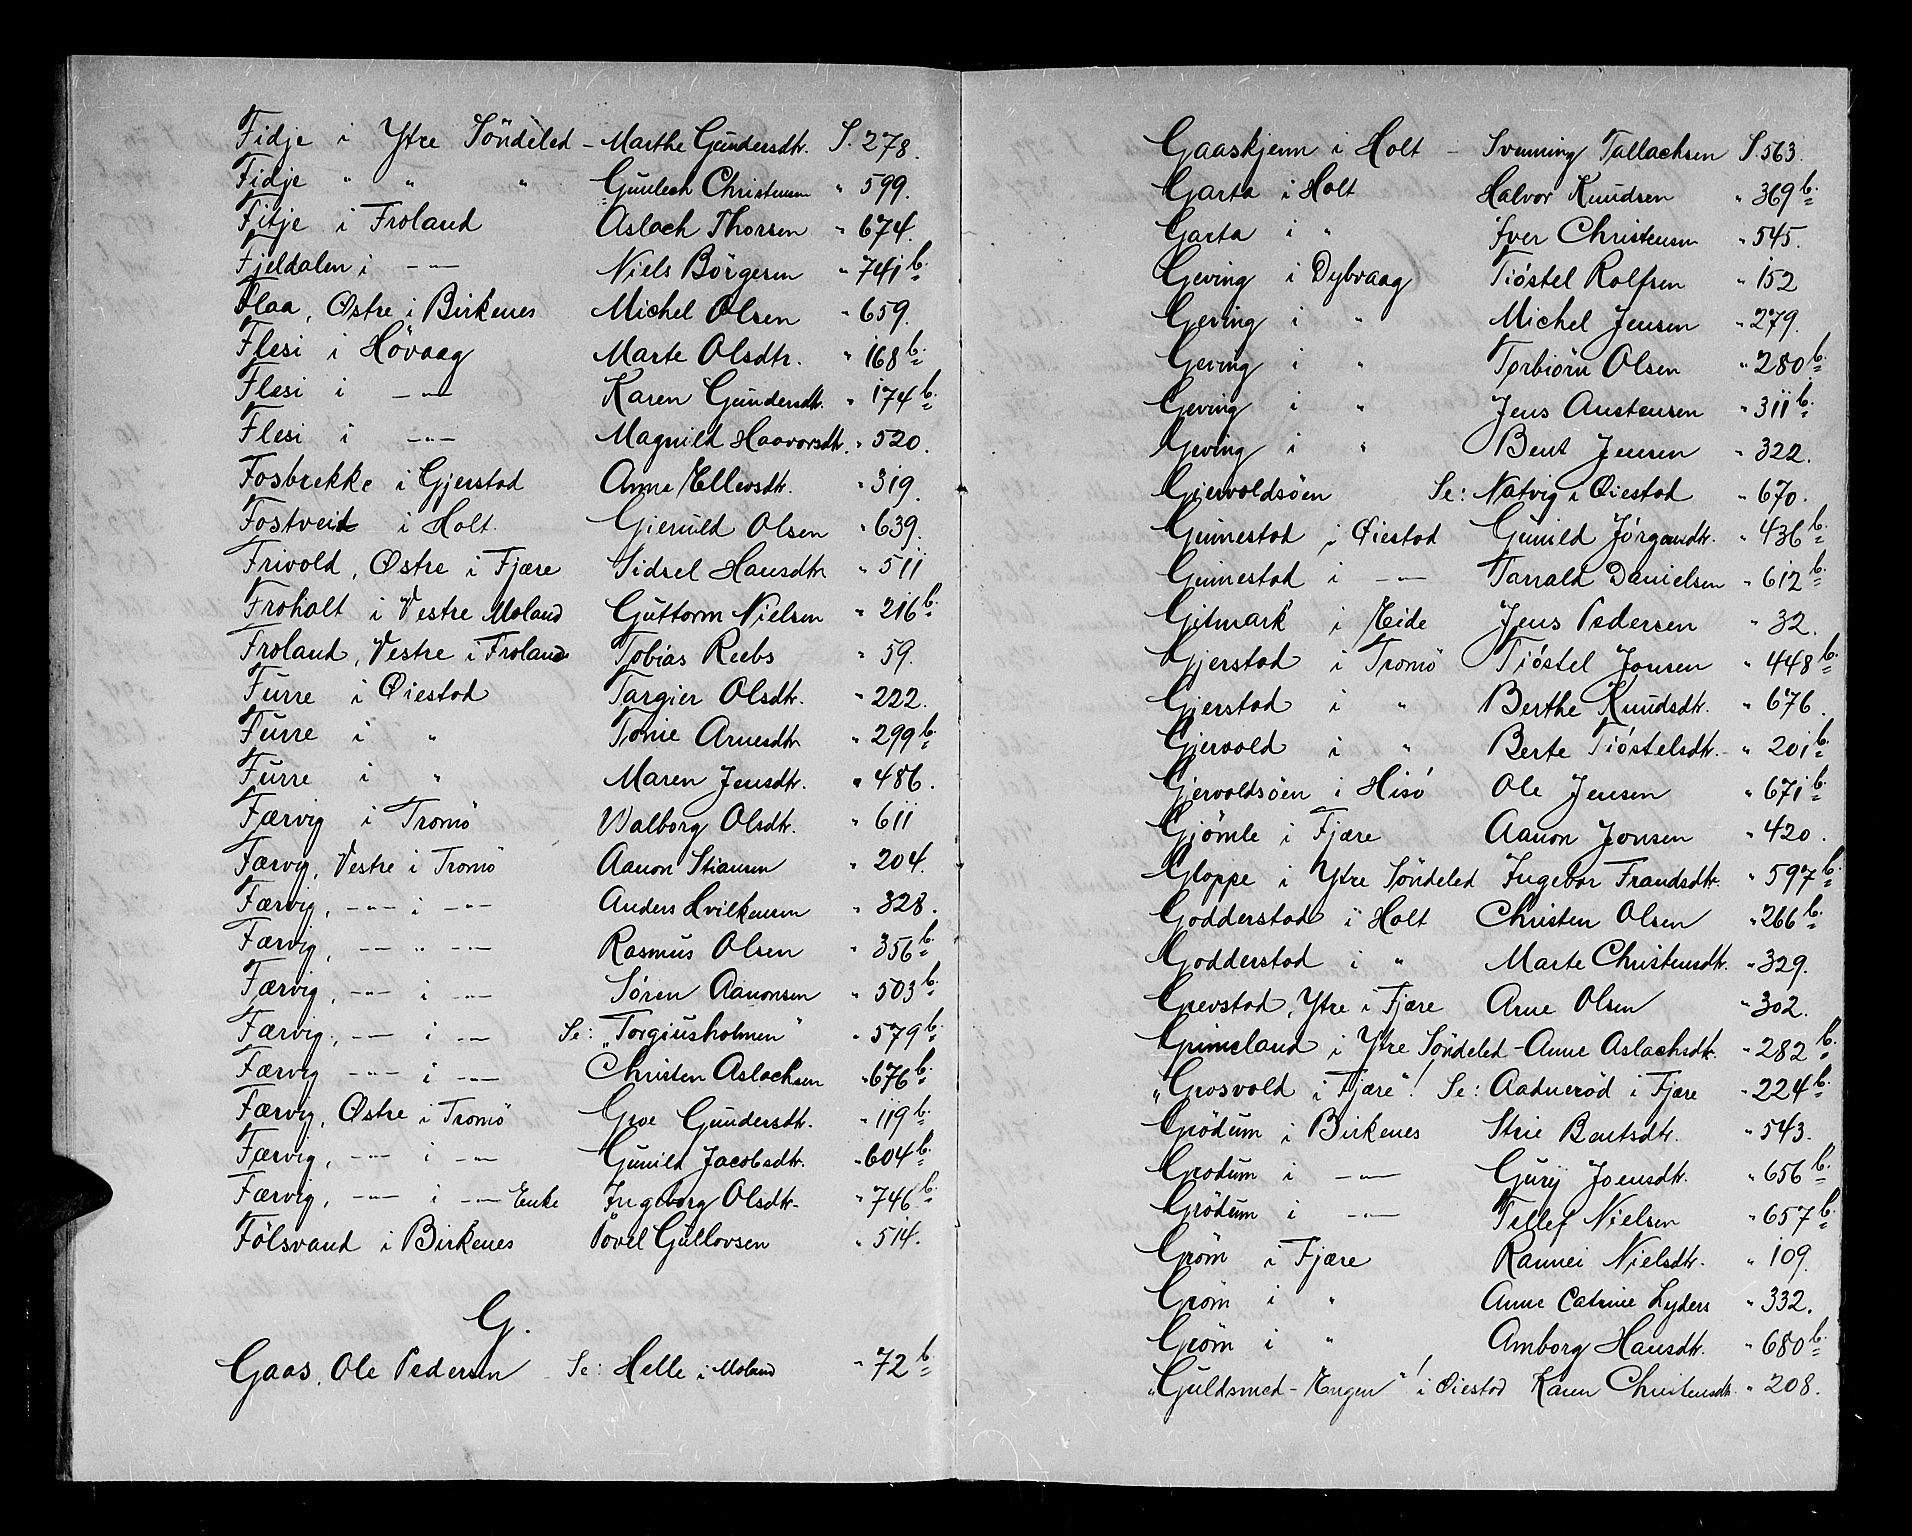 Fidje i Ytre Söndeled - Marthe Gundersdtr. S. 278.
Fidje " " " Gunlech Christensen " 599.
Fitje i Froland Aslach Thorsen " 674.
Fjeldalen i -"- Niels Börgesen " 741 b.
Flaa, Østre i Birkenes Michel Olsen " 659.
Flesi i Hövaag Marte Olsdtr. " 168 b.
Flesi i -"- Karen Gundersdtr. " 174 b.
Flesi i -"- Magnild Haavorsdtr. " 520.
Fosbrekke i Gjerstad Anne Ellevsdtr. " 319.
Fostveit i Holt. Gjeruld Olsen " 639.
Frivold, Østre i Fjære Sidsel Hansdtr " 511
Froholt i Vestre Moland Guttorm Nielsen " 216 b.
Froland, Vestre i Froland Tobias Reebs " 59.
Furre i Øiestad Targier Olsdtr. " 222.
Furre i " Tonie Arnesdtr " 299 b.
Furre i " Maren Jensdtr. " 486.
Færvig i Tromö Valborg Olsdtr. " 611
Færvig, Vestre i Tromö Aanon Stiansen " 204.
Færvig, -"- i -"- Anders Hvilkensen " 328.
Færvig, -"- " -"- Rasmus Olsen " 356 b.
Færvig, -"- i -"- Sören Aanonsen " 503 b.
Færvig, -"- i -"- Se: "Torgiusholmen" " 579 b.
Færvig -"- i -"- Christen Aslachsen " 676 b.
Færvig, Østre i Tromö Groe Gundersdtr. " 119 b.
Færvig, -"- i -"- Gunild Jacobsdtr. " 604 b.
Færvig, -"- i -"- Enke Ingeborg Olsdtr. " 746 b.
Fölsvand i Birkenes Povel Gullovsen " 514.
G.
Gaas, Ole Pedersen - Se: Helle i Moland " 72 b
Gaaskjenn i Holt - Svenning Tallachsen S. 563.
Garta i Holt Halvor Knudsen " 369 b.
Garta i " Iver Christensen " 545.
Geving i Dybvaag Tióstel Rolfsen " 152
Geving i " Michel Jensen " 279.
Geving i " Torbiörn Olsen " 280 b.
Geving i " Jens Austensen " 311 b.
Geving i " Bent Jensen " 322.
Gjervoldsöen Se: Natvig i Øiestad " 670.
Gunnestad i Øiestad Gunild Jörgensdtr. " 436 b.
Gunnestad i -"- Tarrald Danielsen " 612 b.
Gitmark i Eide Jens Pedersen " 32.
Gjerstad i Tromö Tióstel Jonsen " 448 b.
Gjerstad i " Berthe Knudsdtr. " 676.
Gjervold i " Berte Tióstelsdtr. " 201 b.
Gjervoldsöen i Hisö Ole Jensen " 671 b.
Gjömle i Fjære Aanon Jonsen " 420.
Gloppe i Ytre Söndeled Ingebor Frandsdtr. " 597 b.
Godderstad i Holt Christen Olsen " 266 b.
Godderstad i " Marte Christensdtr. " 329.
Grevstad, Ytre i Fjære Arne Olsen " 302.
Grimeland i Ytre Söndeled - Anne Aslachsdtr. " 282 b.
"Grosvold i Fjære"! Se: Aadneröd i Fjære " 224 b.
Grödum i Birkenes Strie Bentsdtr. " 543.
Grödum i -"- Gurij Joensdtr. " 656 b.
Grödum i -"- Tellef Nielsen " 657 b.
Gröm i Fjære Rannei Nielsdtr. " 109.
Gröm i " Anne Catrine Lyders " 332.
Gröm i " Amborg Hansdtr. " 680 b.
"Guldsmed-Engen"! i Øiestad Karen Christensdtr. " 208.